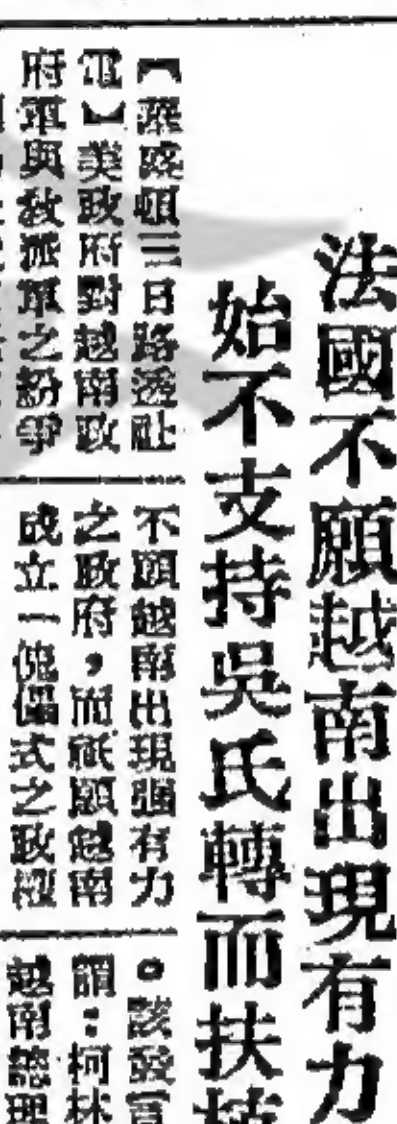 法國不願越南出現有力
始不支持吳氏轉而扶
【華盛頓三日路透社
電】美政府對越南政
府軍與教派軍之紛爭
不願越南出現強有力
之政府，而祇願越南
成立一傀儡式之政權
。該發言
謂：柯林
越南總理